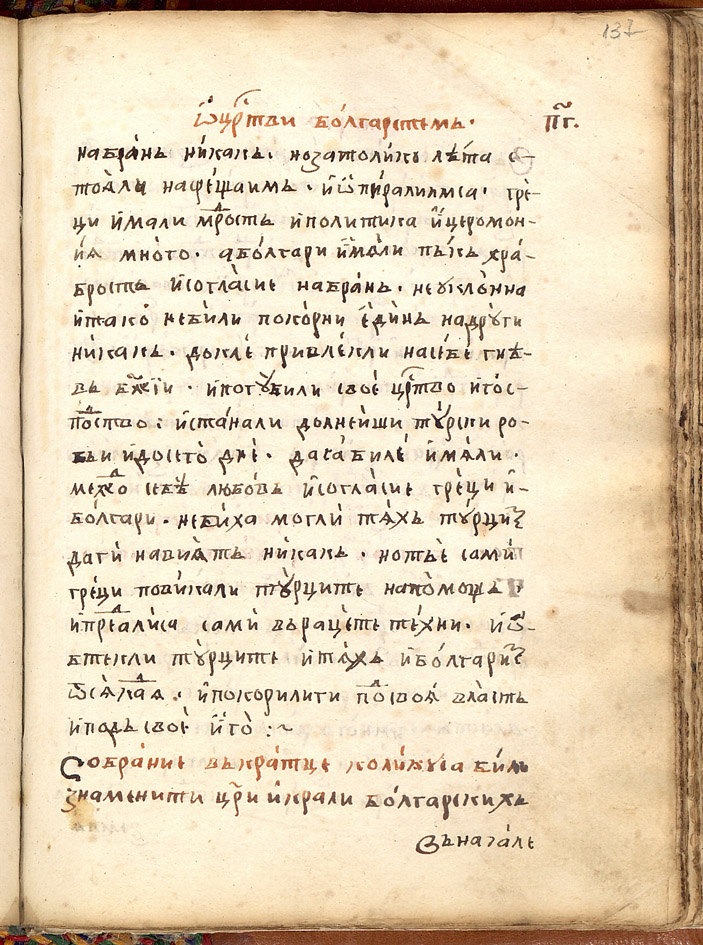 137
Ѡ црⷭ҇тви бо́лгарстемъ · п҃г.
на бра́нь ни́какъ · но за толи́ко лѣ́та с-
тоѧ́ли на фе́щаимъ · и҆ ѡ҆пи́рали имсѧ · гре́-
ци и҆мали мⷣрость и҆ политика и҆ церомон-
иѧ много · а бо́лгари и҆мѧ́ли пъ́къ хра́-
брость и҆ согла́сие на бра́нь · неукло́нна
и҆ тако̀ не били поко́рни є҆ди́нь на дру́ги
ни́какъ · докле́ привле́кли на се́бе гнѣ́-
въ бж҃їи · и҆ погꙋ́били своѐ црⷭ҇тво и҆ гос-
поⷣство : и҆ ста́нали до́лнейши тꙋ́рски ро-
бъи и҆ до сего̀ днѐ · да са билѐ и҆мѧ́ли ·
межⷣо себѣ̀ любо́въ и҆ согла́сие гре́ци и҆
бо́лгари · не би́ха моглѝ тѧ́хъ тꙋ́рци
да гѝ навиѧ́тъ ни́какъ · но тъ́е самѝ
гре́ци пови́кали тꙋ́рците на по́мощъ ·
и҆ преⷣали са самѝ въ раце́те те́хни · и҆ ѡ҆-
бтекли тꙋ́рците и҆ тѧ́хъ и҆ бо́лгари
ѿ сѧ́каⷣѧ · и҆ покорили ги поⷣ своѧ̀ вла́сть
и҆ подъ своѐ и҆го̀ :~
Собра́ние въ кра́тце коли́ꙗу са би́ли
знамени́ти цр҃и и҆ крали бо́лгарскихъ
въ нача́ле